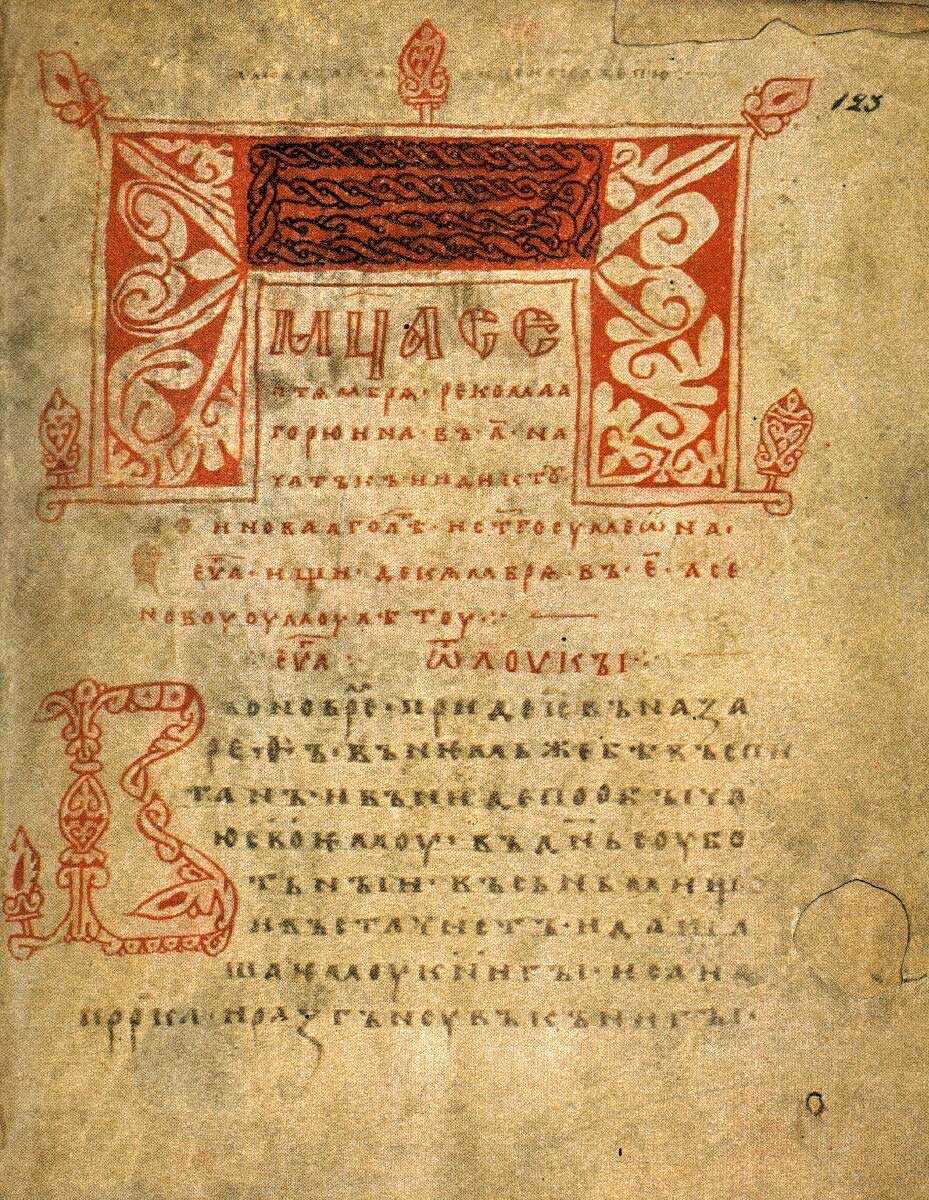 123
МЦА СЕ
ПТѦМБРѦ· РЕКОМАА
ГОРЮИНА· ВЪ А҃· НА
ЧАТЪКЪ ИНДИКТОУ·
И НОВААГО ЛѢ· И СТГО СУМЕѠНА·
ЕУА· ИЩИ· ДЕКѦМБРѦ· ВЪ· Е҃· А СЕ
НОВОУОУМОУ ЛѢТОУ·:·
ЕУА ·:· Ѿ ЛОУКЪІ·:·
ВОНО ВРЕ· ПРИДЕ ІС ВЪ НАЗА
РЕ·Ѳ·Ъ· ВЪ НѤМЬЖЕ БѢ ВЪСПИ
ТАНЪ· И ВЪНИДЕ ПО ОБЪІЧА
Ю СВОѤМОУ· ВЪ ДНЬ СОУБО
ТЬНЪІИ· ВЪ СЬНЬМИЩЕ
И ВЪСТА ЧИСТЪ· И ДАША
ША ѤМОУ КНИГЪІ· ИСАИА
ПРРКА· И РАЗГЪНОУВЪ КЪНИГЪІ·